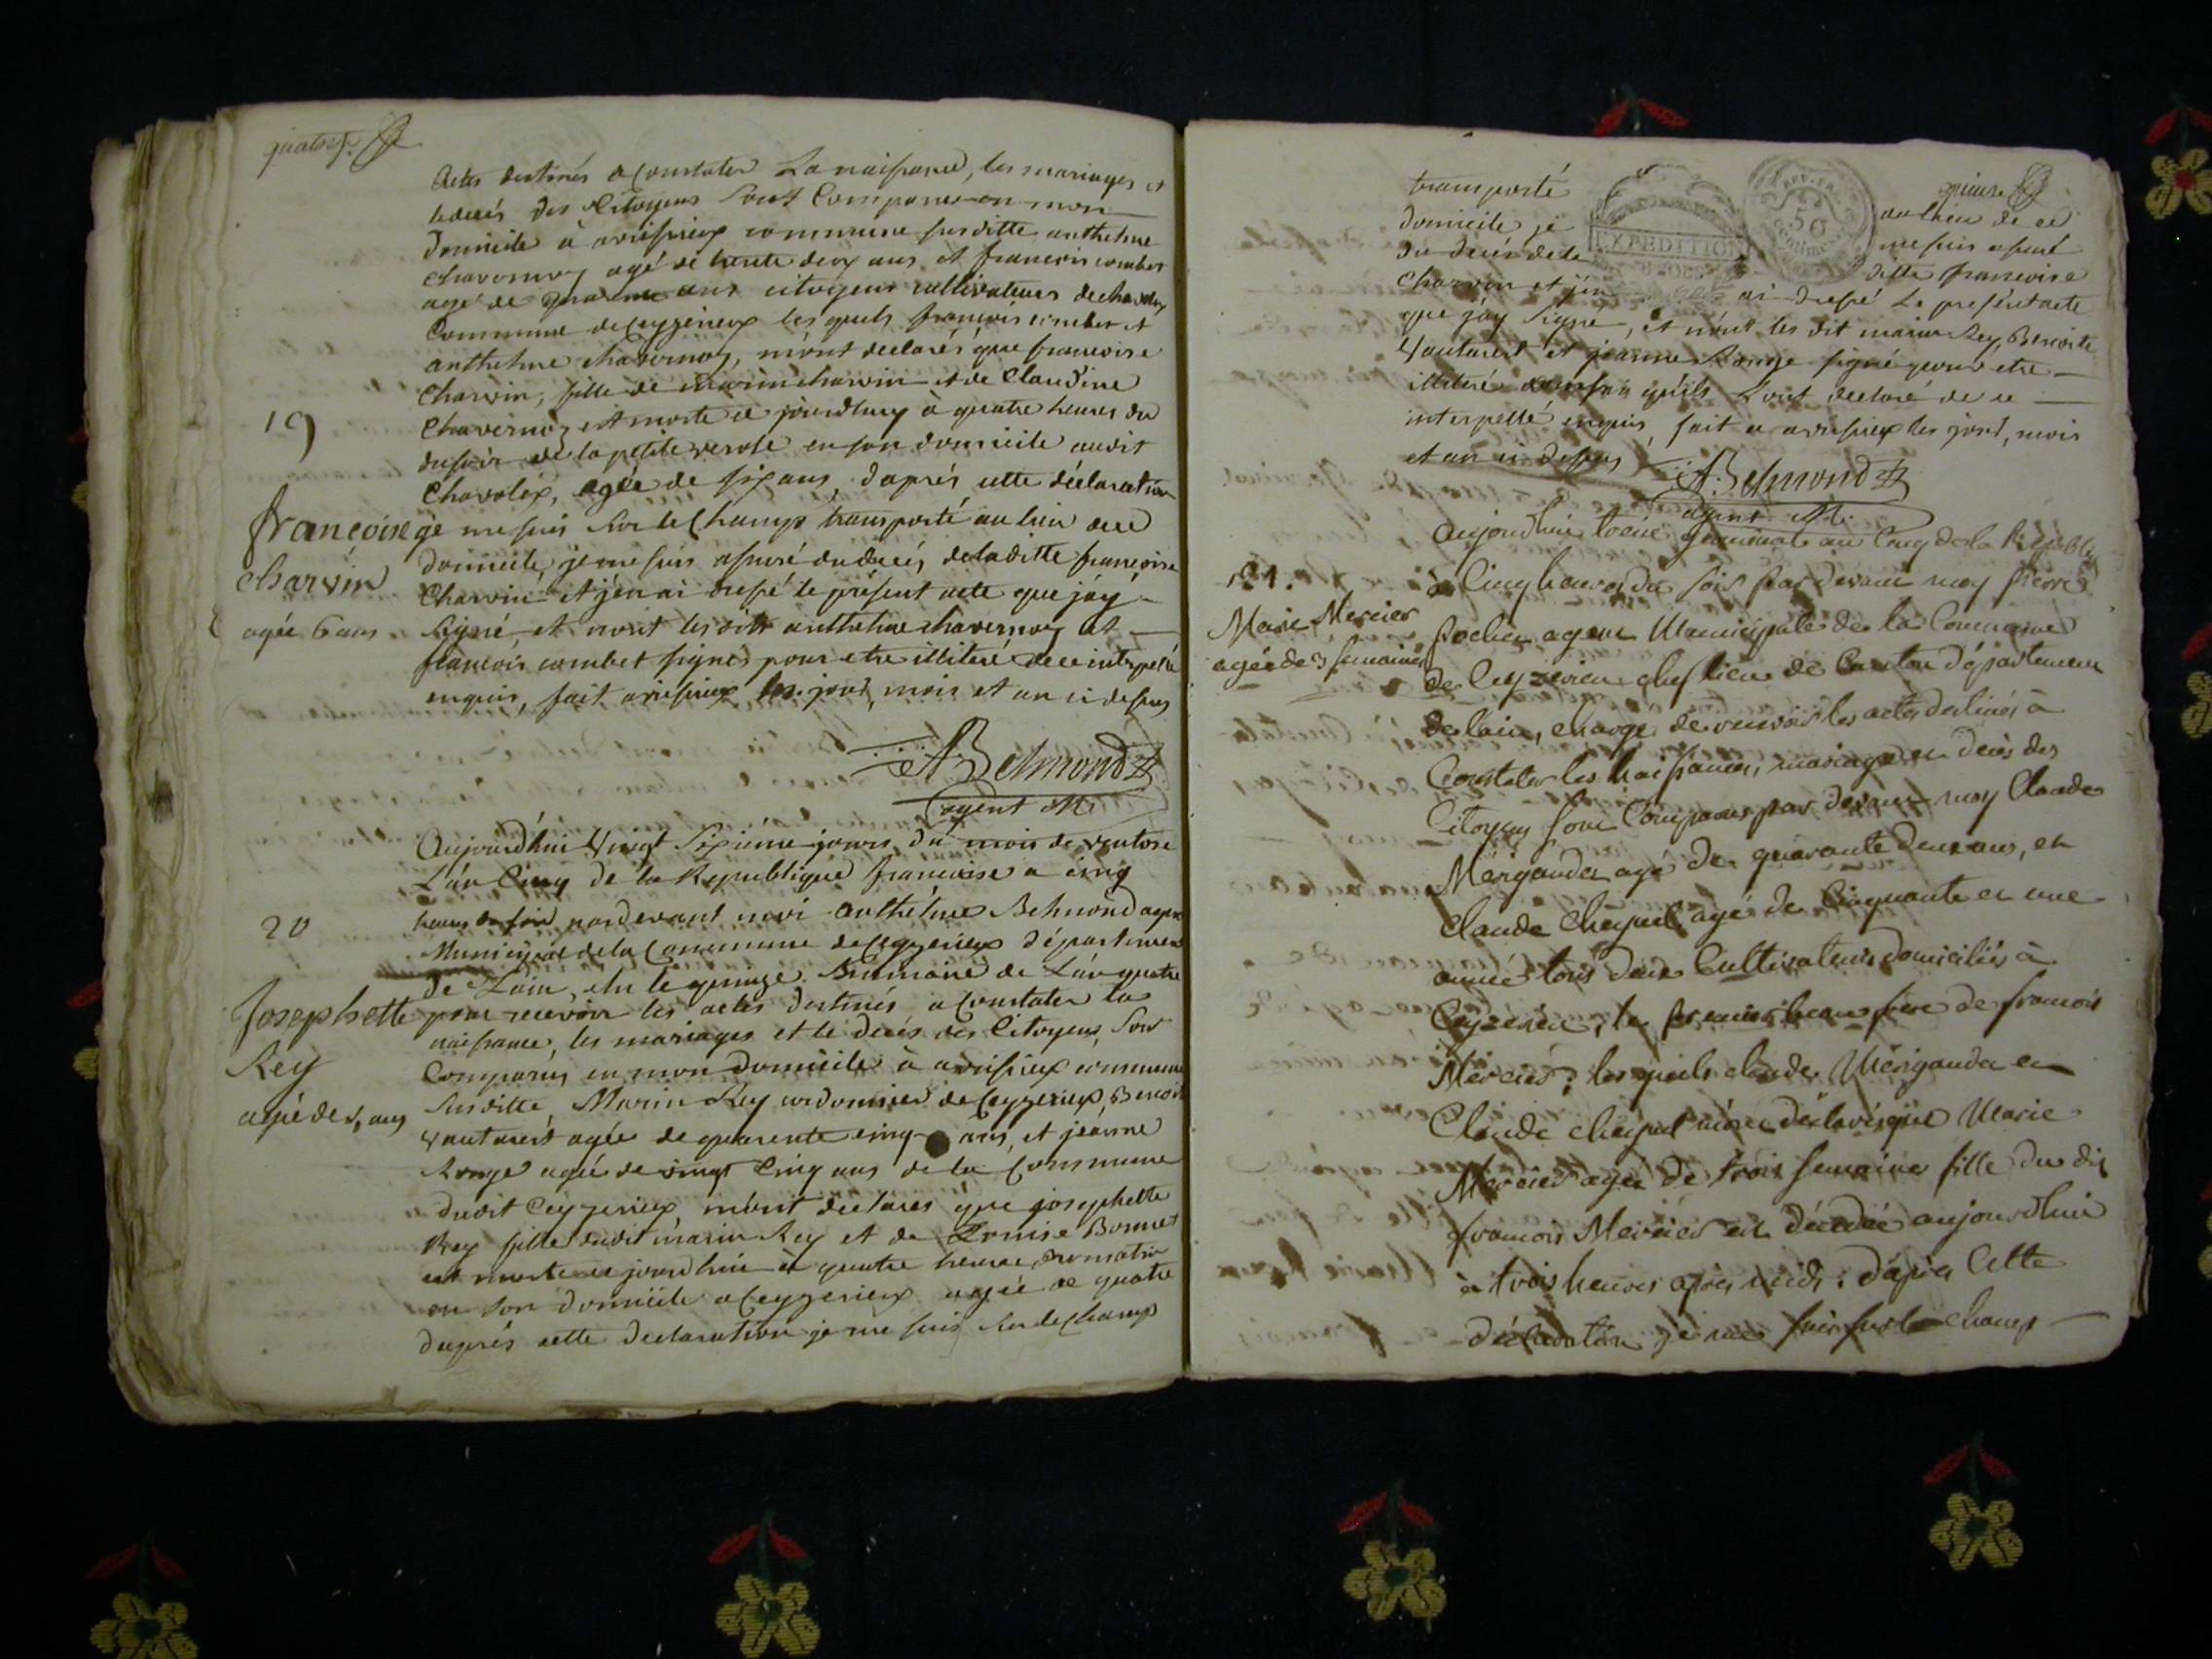 Actes destinés a Constater La naissance, les mariages et
le decés des Citoyens Sont Comparus en mon
domicile à avrissieux commune susditte anthelme
Chavernoz agé de trente deux ans et francois combet
agé de quarante ans citoyens cultivateurs de chavolex
Commune de Ceyzerieux les quels francois combet et
anthelme chavernoz, m'ont declarés que francoise
Charvin, fille de marin charvin et de Claudine
Chavernoz est morte ce jourdhuy à quatre heures du
du soir de la petite verole en son domicile audit
Chavolex, agée de six ans, d'aprés cette déclaration
19
francoise
charvin
agée 6 ans
je me suis Sur le Champ transporté au lieu de ce
domicile, je me suis assuré du decés de la ditte francoise
Charvin et j'en ai dressé le présent acte que j'ay
Signé et n'ont les dits anthelme chavernoz et
francois combet signés pour etre illiteré de ce interpellé
enquis, fait a avrissieux les jour, mois et an ci dessus
A. Belmond
agent M.
Aujourd'hui Vingt Sixiéme jours du mois de ventose
L'an Cinq de la Republique francoise a cinq
heures du soir pardevant moi anthelme Belmond agent
Municipal de la Commune de Ceyzerieux département
de L'ain, élu le quinze Brumaire de L'an quatre
20
Josephette
Rey
agée de 4 ans
pour recevoir les actes destinés a Constater la
naissance, les mariages et le decés des Citoyens, Sont
Comparus en mon domicile à avrissieux commune
Susditte, Marin Rey cordonnier de Ceyzerieux, Benoite
Vautaret agée de quarente cinq ans, et jeanne
Ronge agée de vingt Cinq ans de la Commune
dudit Ceyzerieux m'ont declarés que josephette
Rey fille dudit marin Rey et de Louise Bonnet
est morte ce jourdhui à quatre heures du matin
en son domicile a Ceyzerieux agée de quatre
d'aprés cette declaration je me suis Sur le Champ
transporté au lieu de ce
domicile je me suis assuré
du decés de la ditte francoise
Charvin et j'en ai dressé Le présent acte
que j'ay Signé, et n'ont les dit marin Rey, Benoite
Vautaret et jeanne Ronge signé pour etre
illiteré ainsi qu'ils L'ont declaré de ce
interpellé enquis, fait a avrissieux les jour, mois
et an ci dessus
A. Belmond
agent M.
EXPEDITION
50
Centimes
21.
Marie Mercier
agée de 3 semaines
Aujourdhui troisie germinal an Cinq de la Republiq
à Cinq heures du soir par devant moy pierre
pochet agent Municipale de la Commune
de Ceyzerieu chef lieu de Canton département
de lain, chargé de recevoir les actes destinés à
Constater les naissances, mariage et decés des
Citoyens sont Comparus par devant moy Claude
Mérgandet agé de quarante deux ans, et
Claude Cheynel agé de Cinquante et une
année tous deux Cultivateurs domiciliés à
Ceyzerieu, le premier beau frere de francois
Mercier, les quels claude Mérgandet et
Claude cheynel m'ont déclarés que Marie
Mercier agée de trois semaine fille du dit
francois Mercier est décédée aujourdhui
à trois heures aprés midi. d'aprés Cette
déclaration je me suis sur le champ